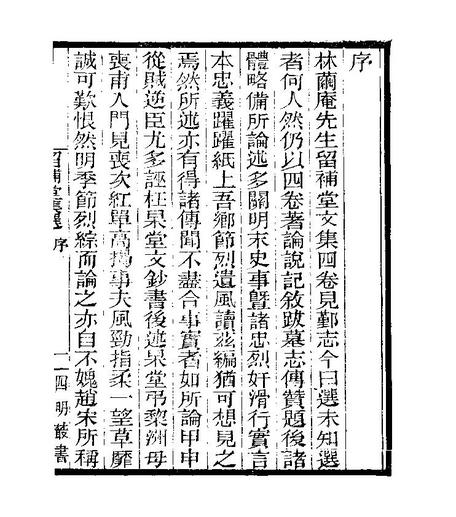 序
林蠒庵先生留補堂文集四卷見鄞志今曰選未知選
者何人然仍以四卷著論說記敘跋墓志傳贊題後諸
體略備所論述多關明末史事曁諸忠烈奸滑行實言
本忠義躍躍紙上吾鄉節烈遺風讀茲編猶可想見之
焉然所述亦有得諸傳聞不盡合事實者如所論甲申
從賊逆臣尤多誣枉杲堂文鈔書後述杲堂弔黎洲母
喪甫入門見喪次紅單高揭事夫風勁指柔一望草靡
誠可歎恨然明季節烈綜而論之亦自不媿趙宋所稱
留補堂集選 序
一 四明叢書